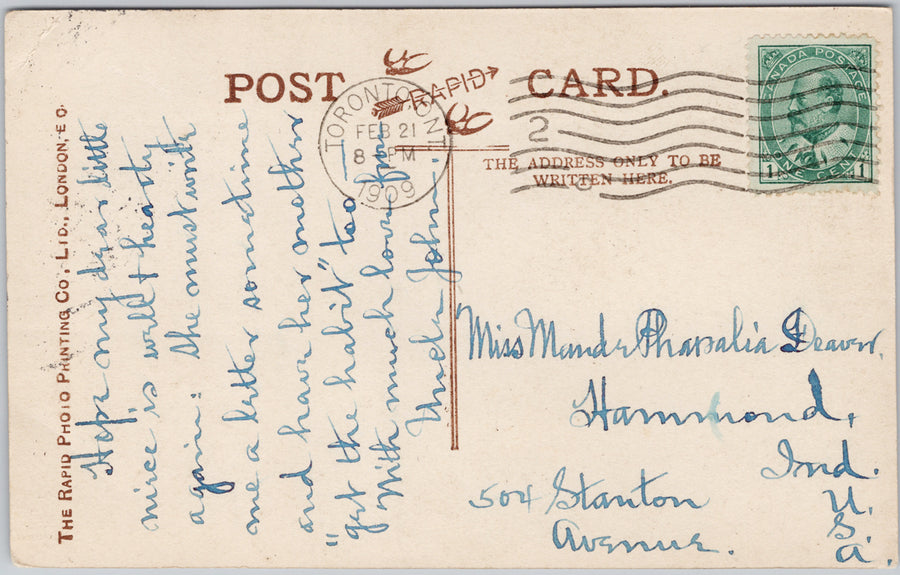 POST CARD.
RAPID
TORONTO, ONT.
FEB 21
8 PM
1909
2
CANADA POSTAGE
ONE CENT
1 1
THE ADDRESS ONLY TO BE
WRITTEN HERE.
THE RAPID PHOTO PRINTING CO., LTD., LONDON, E.C.
Hope my dear little
niece is well & hearty
again: she must write
me a letter sometime
and have her mother
"get the habit" too —
With much love from
Uncle John.
Miss Maude Deaver,
Hammond,
Ind.
U.
S.
A.
504 Stanton
Avenue.